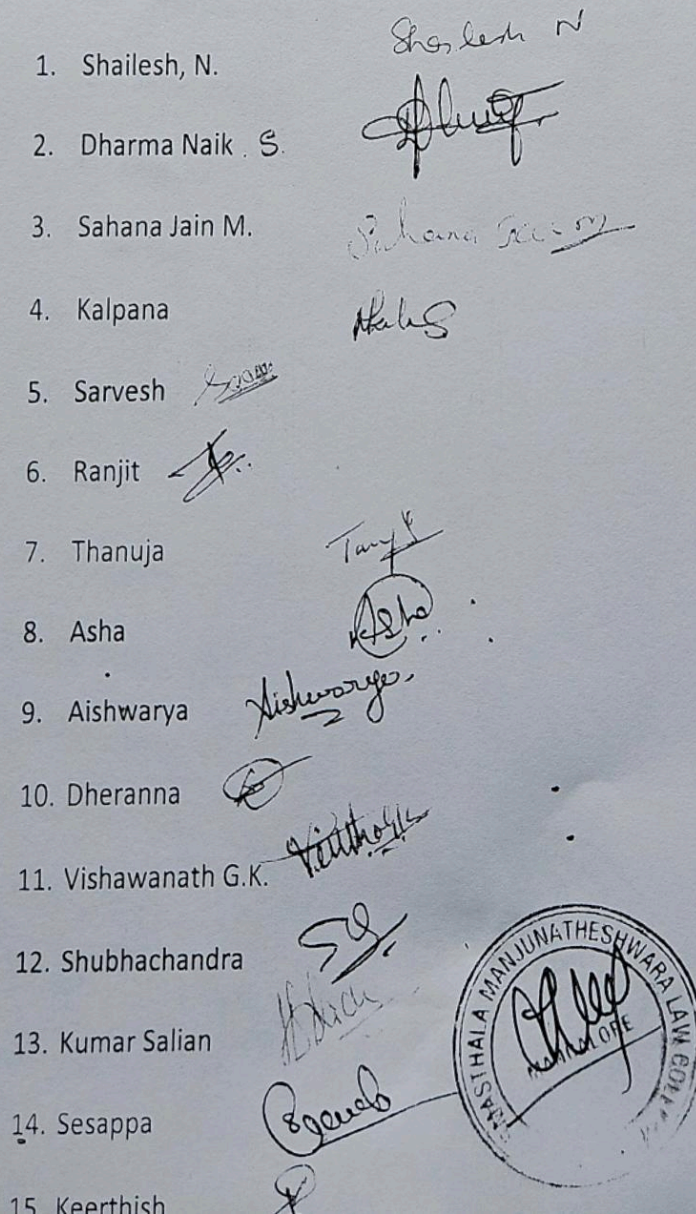 1. Shailesh, N. Shailesh N
2. Dharma Naik . S.
3. Sahana Jain M. Sahana Jain M
4. Kalpana
5. Sarvesh
6. Ranjit
7. Thanuja
8. Asha Asha
9. Aishwarya Aishwarya
10. Dheranna
11. Vishawanath G.K.
12. Shubhachandra
13. Kumar Salian
14. Sesappa
15. Keerthish
MANJUNATHESHWARA LAW
MANGALORE